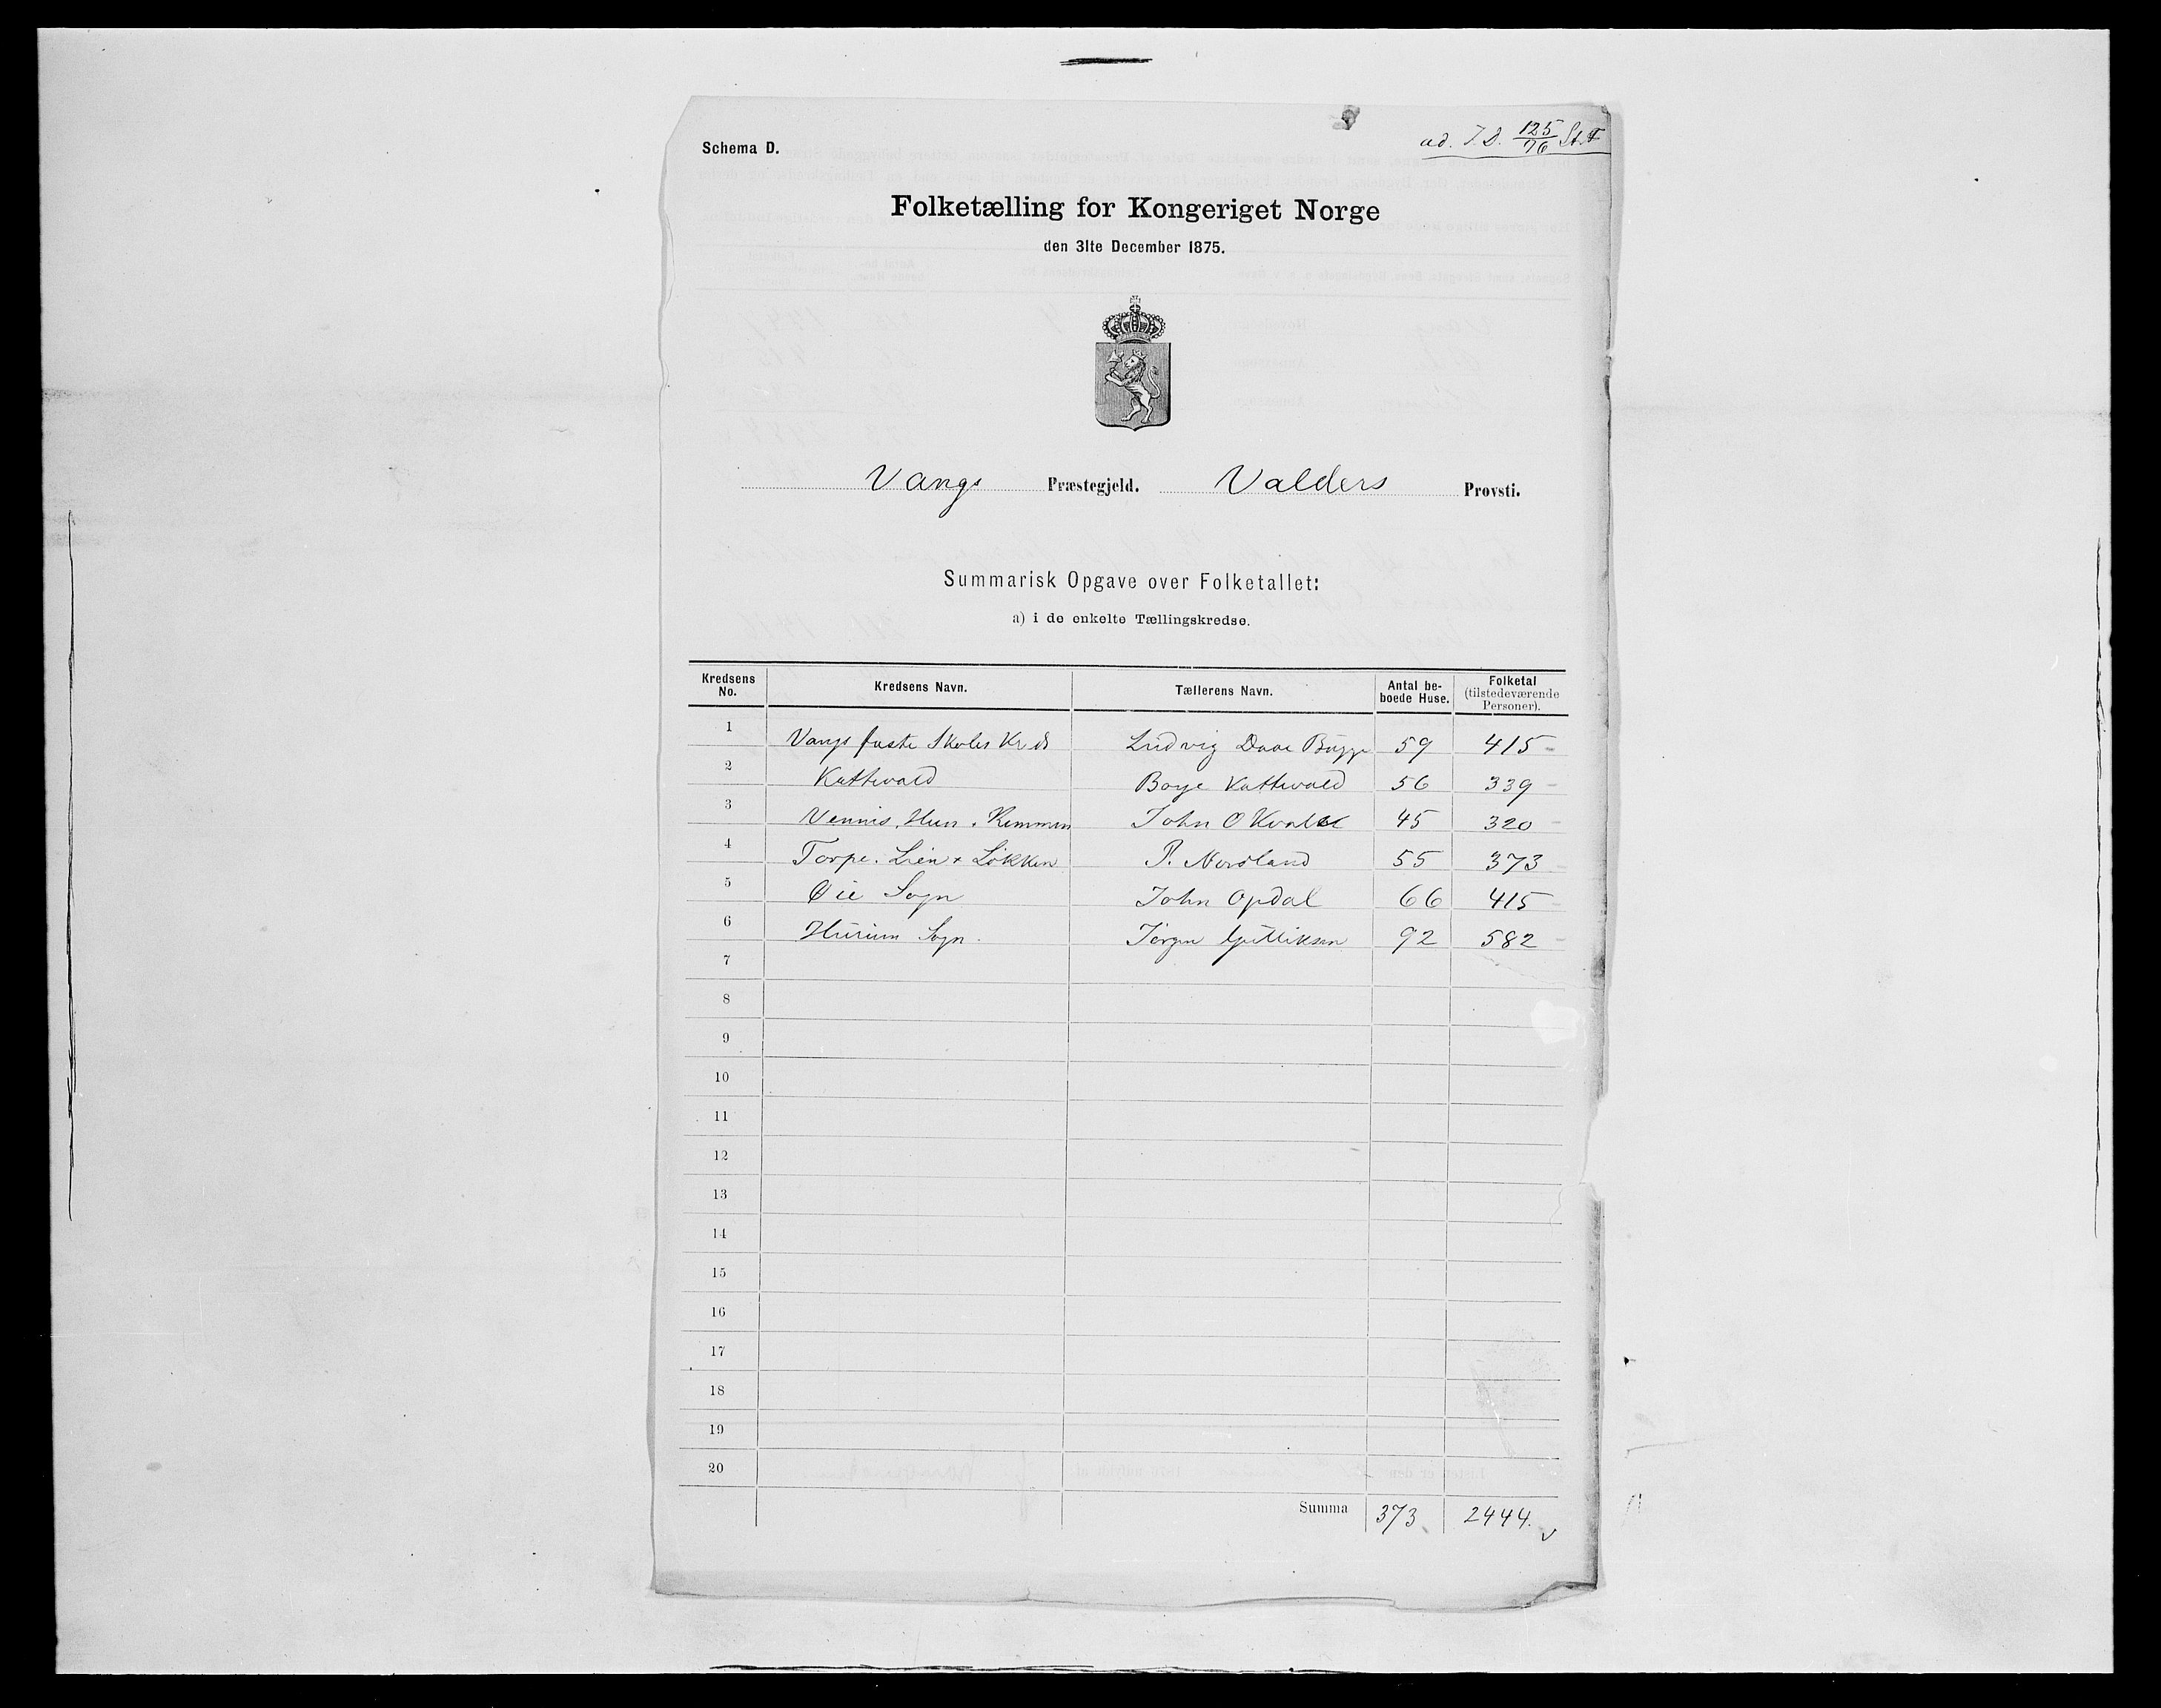 Schema D.
ad. T.D. 125/76 St.
Folketælling for Kongeriget Norge
den 31te December 1875.
Vangs Præstegjeld. Valders Provsti.
Summarisk Opgave over Folketallet:
a) i de enkelte Tællingskredse.
Kredsens No. Kredsens Navn. Tællerens Navn. Antal beboede Huse. Folketal (tilstedeværende Personer).
1 Vangs faste Skoles Kreds Ludvig Daae Bugge 59 415
2 Kattevold Boye Kattevold 56 339
3 Vennis, Hun. Remmen John O Kvale 45 320
4 Torpe. Lien + Løkken P. Nordland 55 373
5 Øie Sogn John Opdal 66 415
6 Hurum Sogn. Jörgen Gulliksen 92 582
7
8
9
10
11
12
13
14
15
16
17
18
19
20
Summa 373 2444.